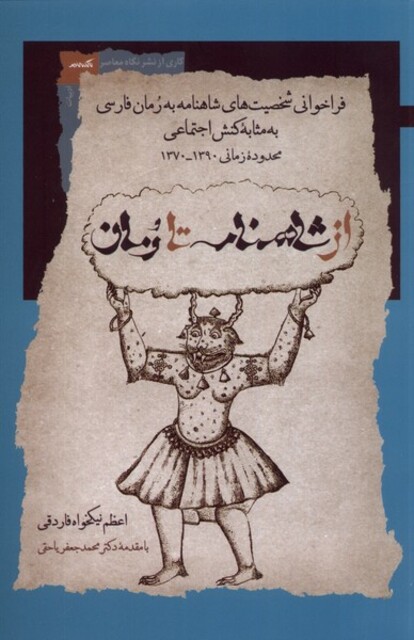 کاری از نشر نگاه معاصر
فراخوانی شخصیت‌های شاهنامه به رُمان فارسی
به مثابهٔ کنش اجتماعی
محدودهٔ زمانی ۱۳۹۰-۱۳۷۰
از شاهنامه تا رُمان
اعظم نیکخواه فاردقی
با مقدمهٔ دکتر محمدجعفر یاحقی